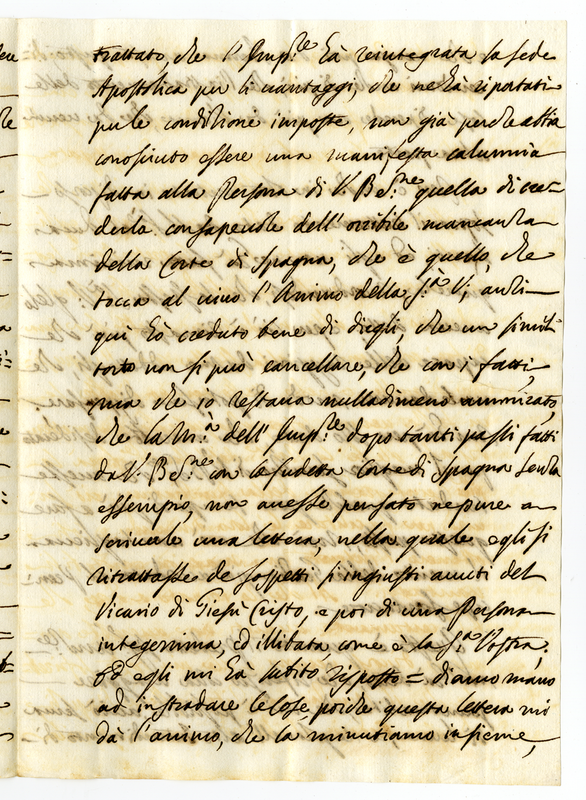 trattato, che l'Imp.re hà reintegrata la sede
Apostolica per li vantaggi, che ne hà riportati
per le condizioni imposte, non già perche abbia
conosciuto essere una manifesta calumnia
fatta alla Persona di V. B.ne quella di cre=
derla consapevole dell'orribile mancanza
della Corte di Spagna, che è quello, che
tocca al vivo l'Animo della S.à V., anzi
quì hò creduto bene di dirgli, che un simil
torto non si può cancellare, che con i fatti,
ma che io restava nulladimeno ammirato,
che la M.à dell'Imp.re dopo tanti passi fatti
da V. B.ne con la sudetta Corte di Spagna senza
essempio, non avesse pensato nepure a
scriverle una lettera, nella quale egli si
ritrattasse de sospetti sì ingiusti avuti del
Vicario di Giesù Cristo, e poi di una Persona
integerrima, ed illibata come è la S.à Vostra,
ed egli mi hà subito risposto = diamo mano
ad instradare le cose, poiche questa lettera mi
dà l'animo, che la minutiamo insieme,